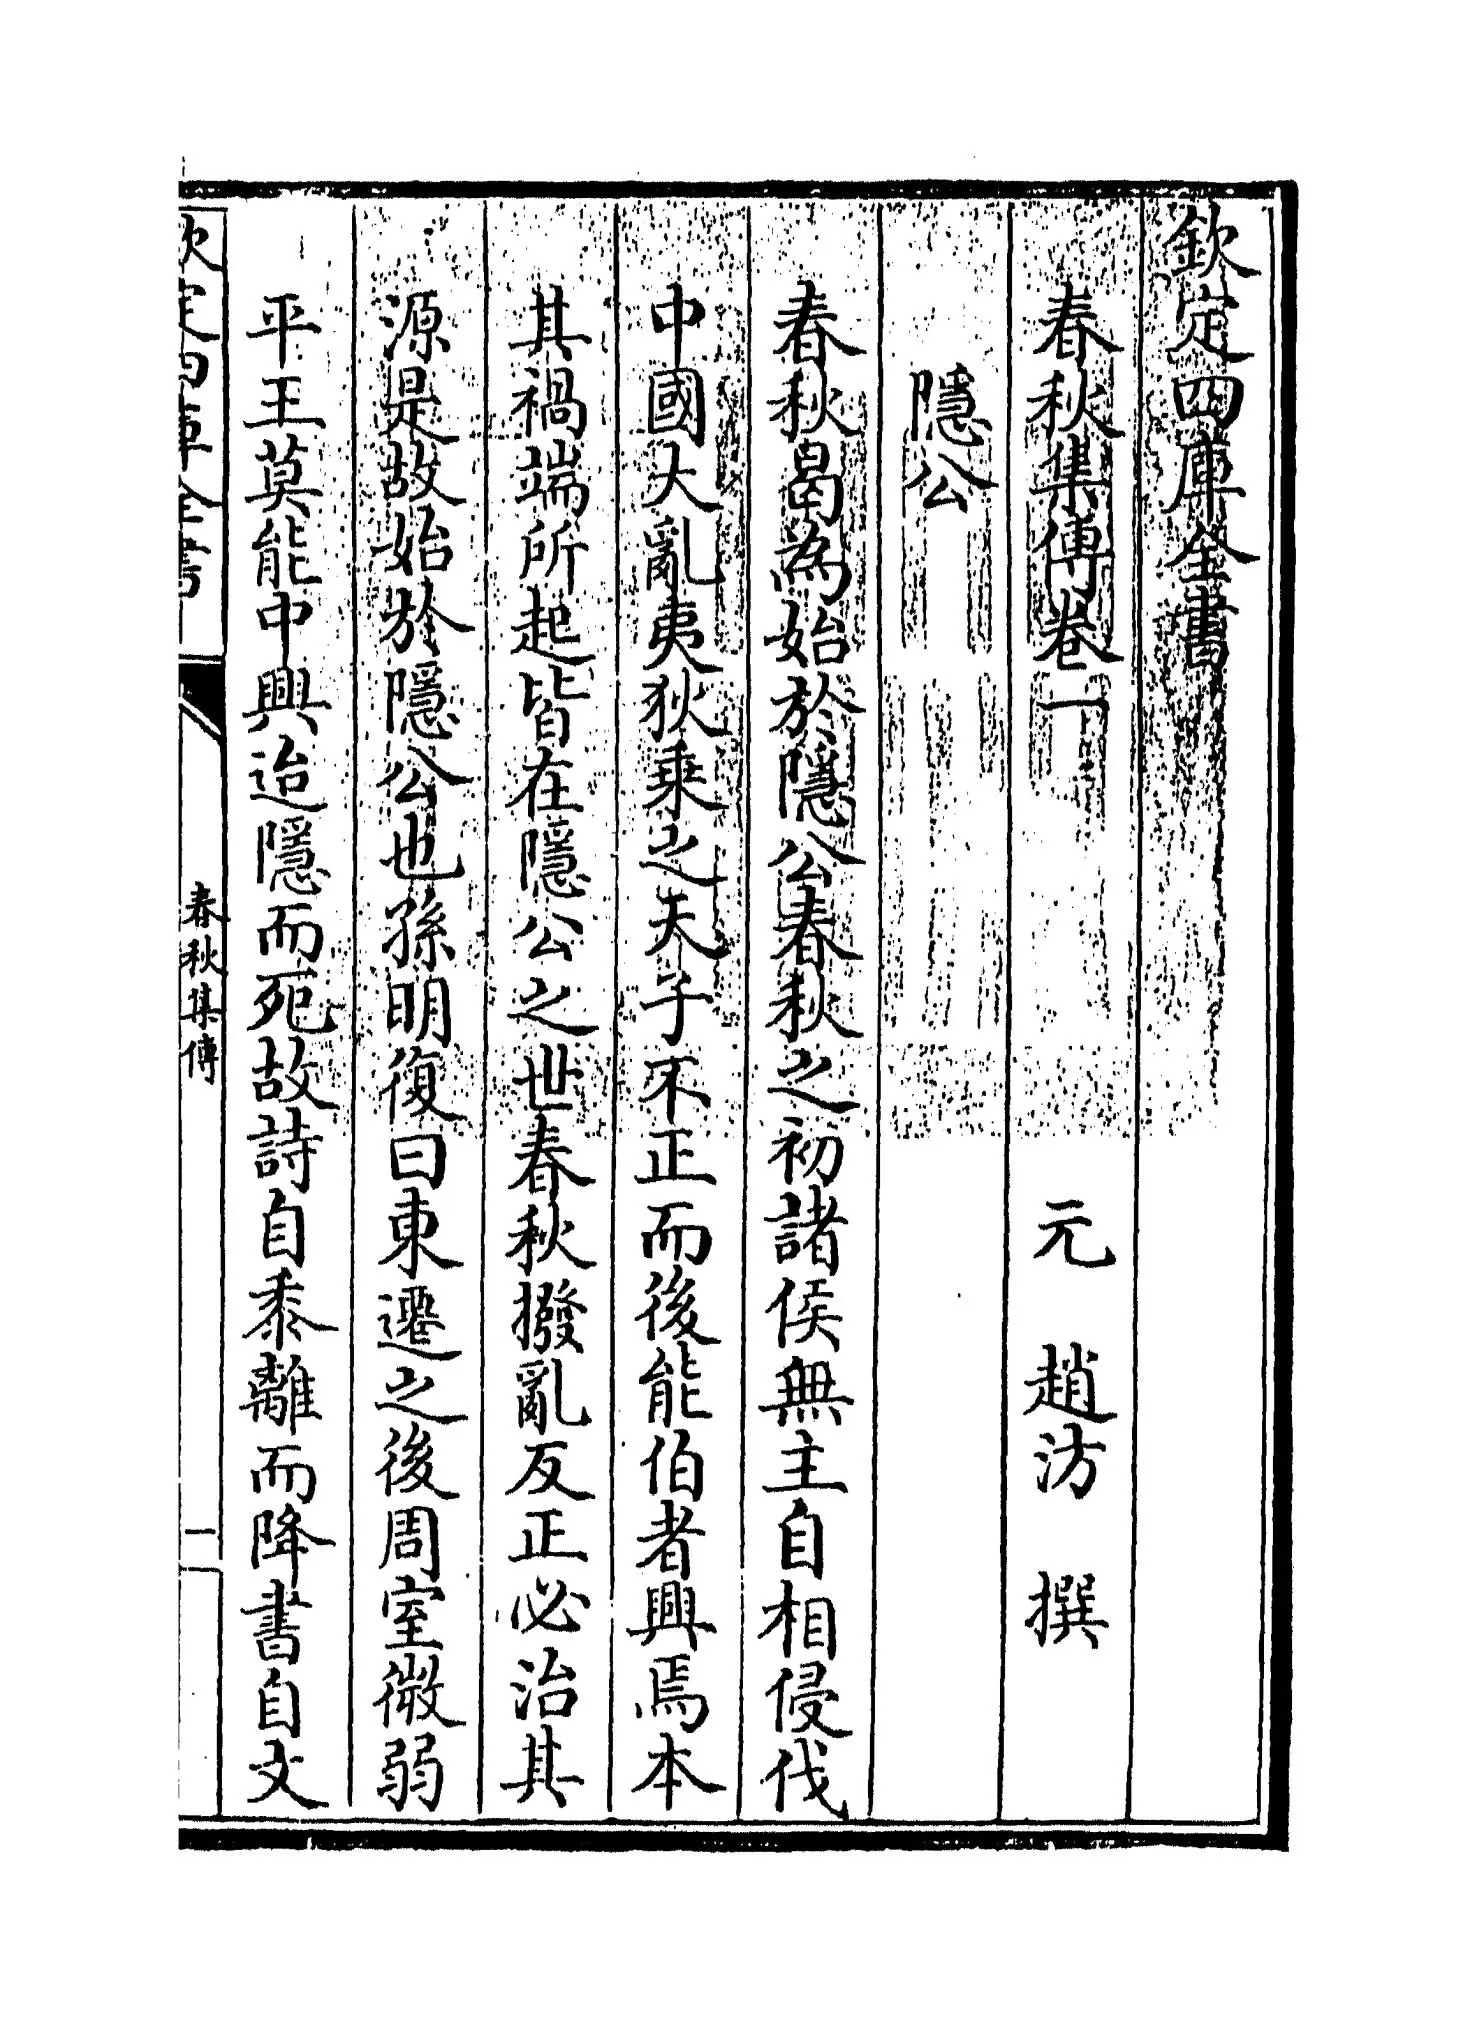 欽定四庫全書
春秋集傳卷一　元　趙汸　撰
隱公
春秋曷為始於隱公春秋之初諸侯無主自相侵伐
中國大亂夷狄乘之天子不正而後能伯者興焉本
其禍端所起皆在隱公之世春秋撥亂反正必治其
源是故始於隱公也孫明復曰東遷之後周室微弱
平王莫能中興迨隱而死故詩自黍離而降書自文
欽定四庫全書
春秋集傳
一